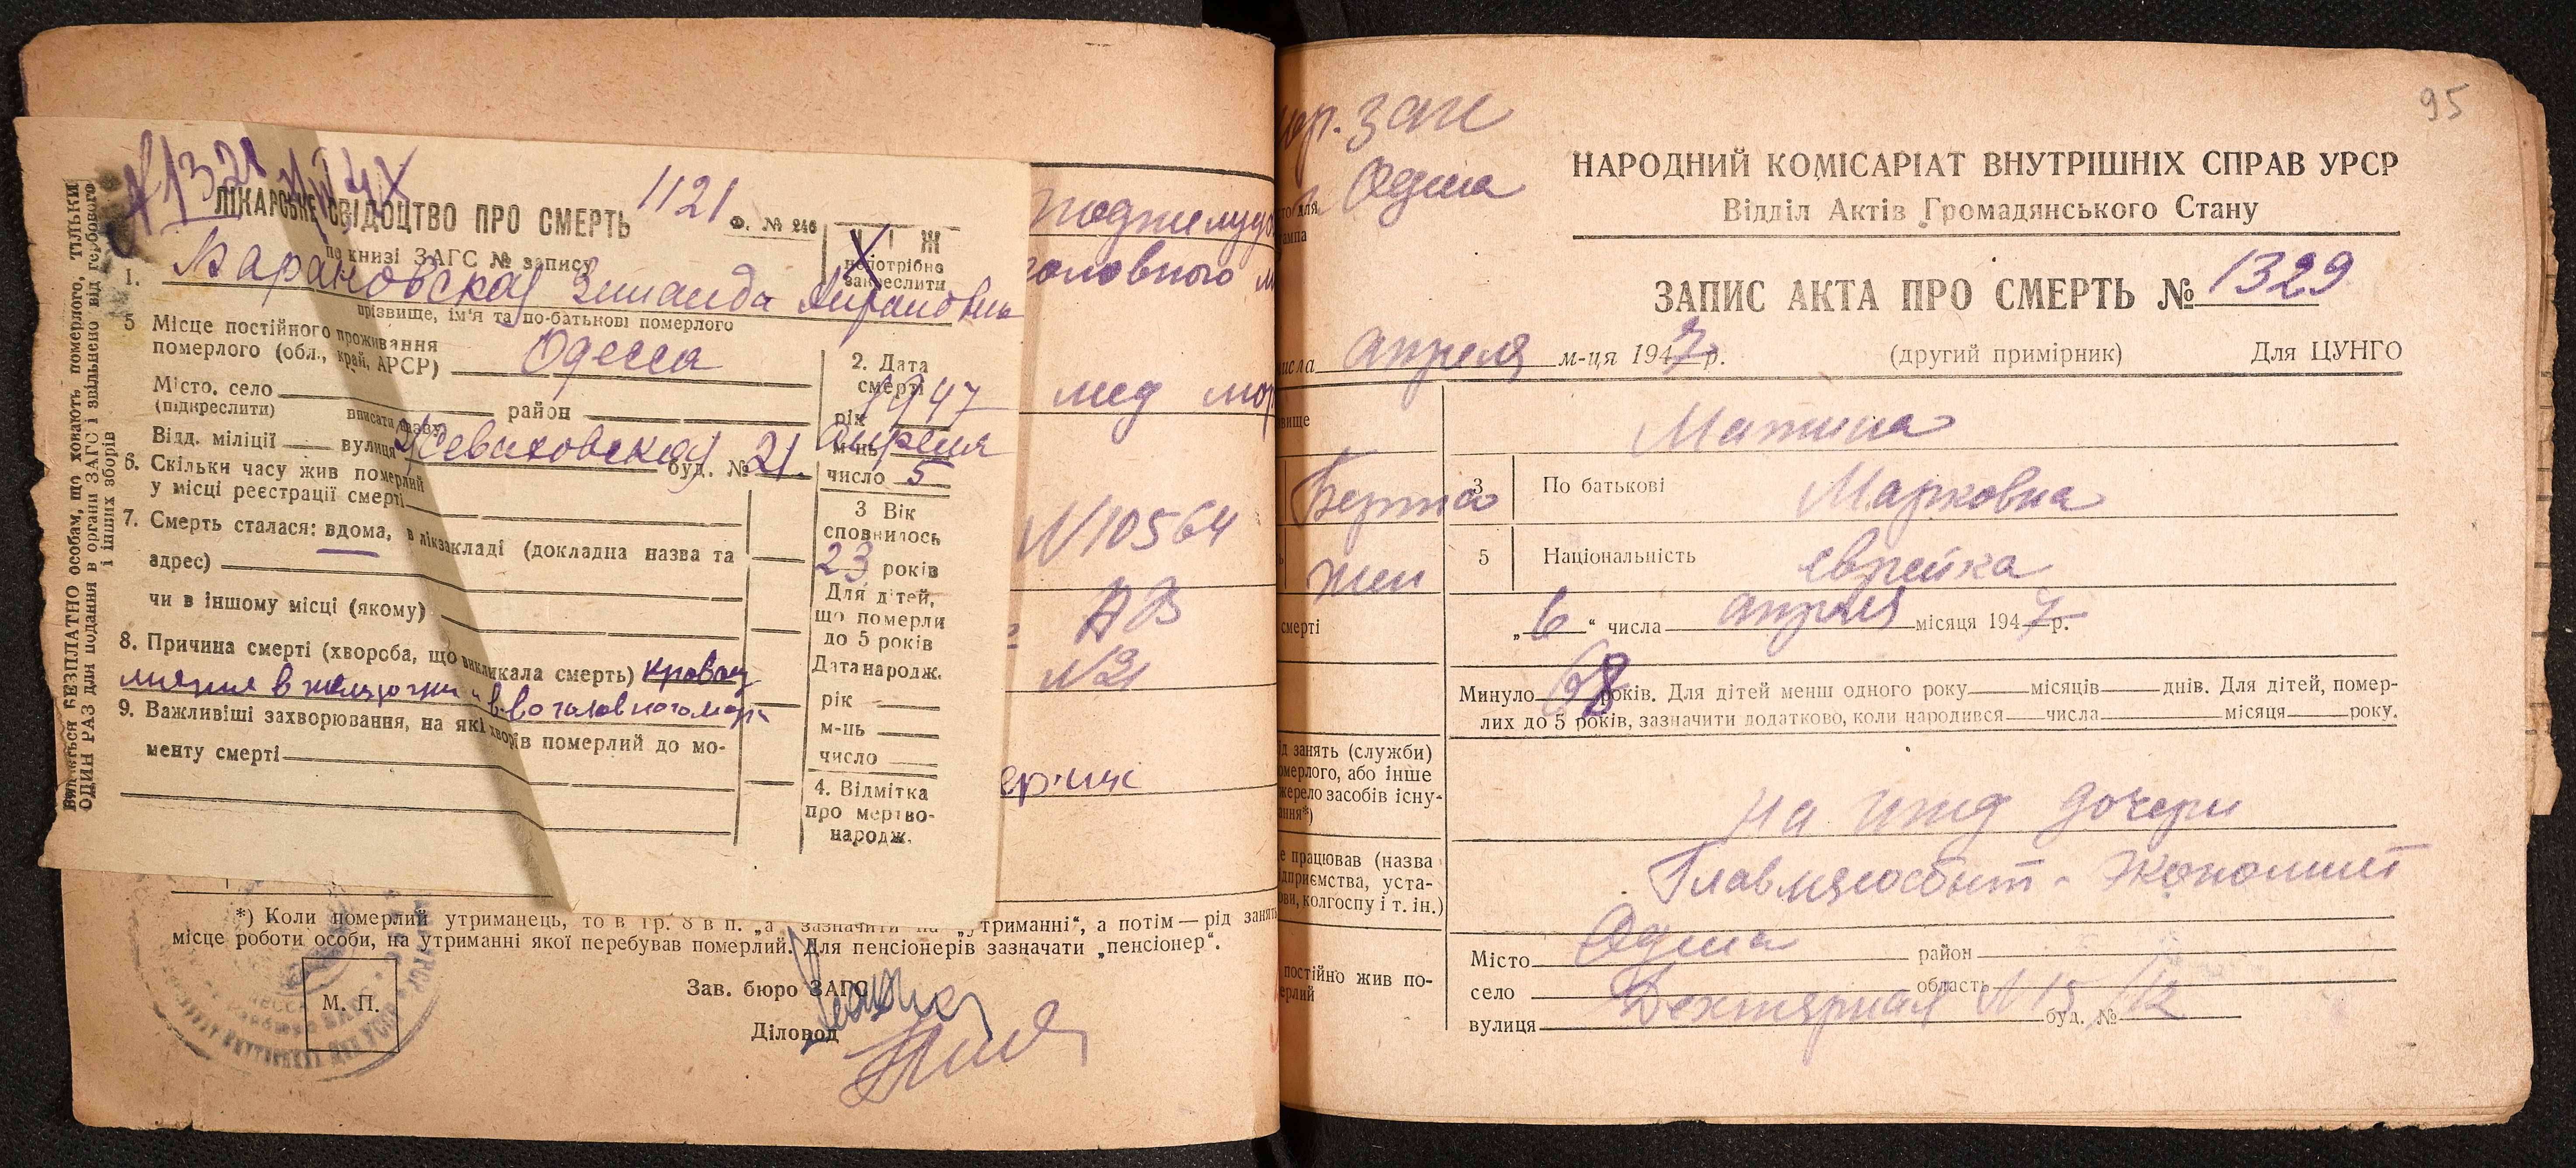 1121
ЛІКАРСЬКЕ СВІДОЦТВО ПРО СМЕРТЬ
Ф. № 246
по книзі ЗАГС № запису
Ч І Ж
непотрібне закреслити
1. Барановская Зинаида
прізвище, ім'я та по-батькові померлого
5 Місце постійного проживання
померлого (обл., край, АРСР) Одесса
Місто, село район
(підкреслити) вписати назву
Відд. міліції вулиця буд. № 21.
6. Скільки часу жив померлий
у місці реєстрації смерті
7. Смерть сталася: вдома, в лікзакладі (докладна назва та
адрес)
чи в іншому місці (якому)
8. Причина смерті (хвороба, що викликала смерть)
9. Важливіші захворювання, на які хворів померлий до мо-
менту смерті
2. Дата
смерті
рік 1947
м-нь апреля
число 5
3 Вік
сповнилось
23 років
Для дітей,
що померли
до 5 років
Дата народж.
рік
м-нь
число
4. Відмітка
про мертво-
народж.
Видається БЕЗПЛАТНО особам, що ховають померлого, ТІЛЬКИ
ОДИН РАЗ для подання в органи ЗАГС і звільнено від гербового
і інших зборів
головного
мед
N 10564
АВ
N 21
*) Коли померлий утриманець, то в гр. 8 в п. „а зазначити на „утриманні“, а потім — рід занять
місце роботи особи, на утриманні якої перебував померлий. Для пенсіонерів зазначати „пенсіонер“.
Зав. бюро ЗАГС
Діловод
М. П.
95
гор. заг
Одесса
НАРОДНИЙ КОМІСАРІАТ ВНУТРІШНІХ СПРАВ УРСР
Відділ Актів Громадянського Стану
ЗАПИС АКТА ПРО СМЕРТЬ № 1329
числа апреля м-ця 1947 р. (другий примірник) Для ЦУНГО
Матина
Берта 3 По батькові Марковна
жен 5 Національність еврейка
смерті „6“ числа апреля місяця 1947 р.
Минуло 68 років. Для дітей менш одного року місяців днів. Для дітей, помер-
лих до 5 років, зазначити додатково, коли народився числа місяця року.
занять (служби)
померлого, або інше
джерело засобів існу-
вання*)
на ижд дочери
працював (назва
підприємства, уста-
нови, колгоспу і т. ін.)
Главмясосбыт - экономист
постійно жив по-
мерлий
Місто Одесса район
село область
вулиця Дехтярная N 15 буд. № 12